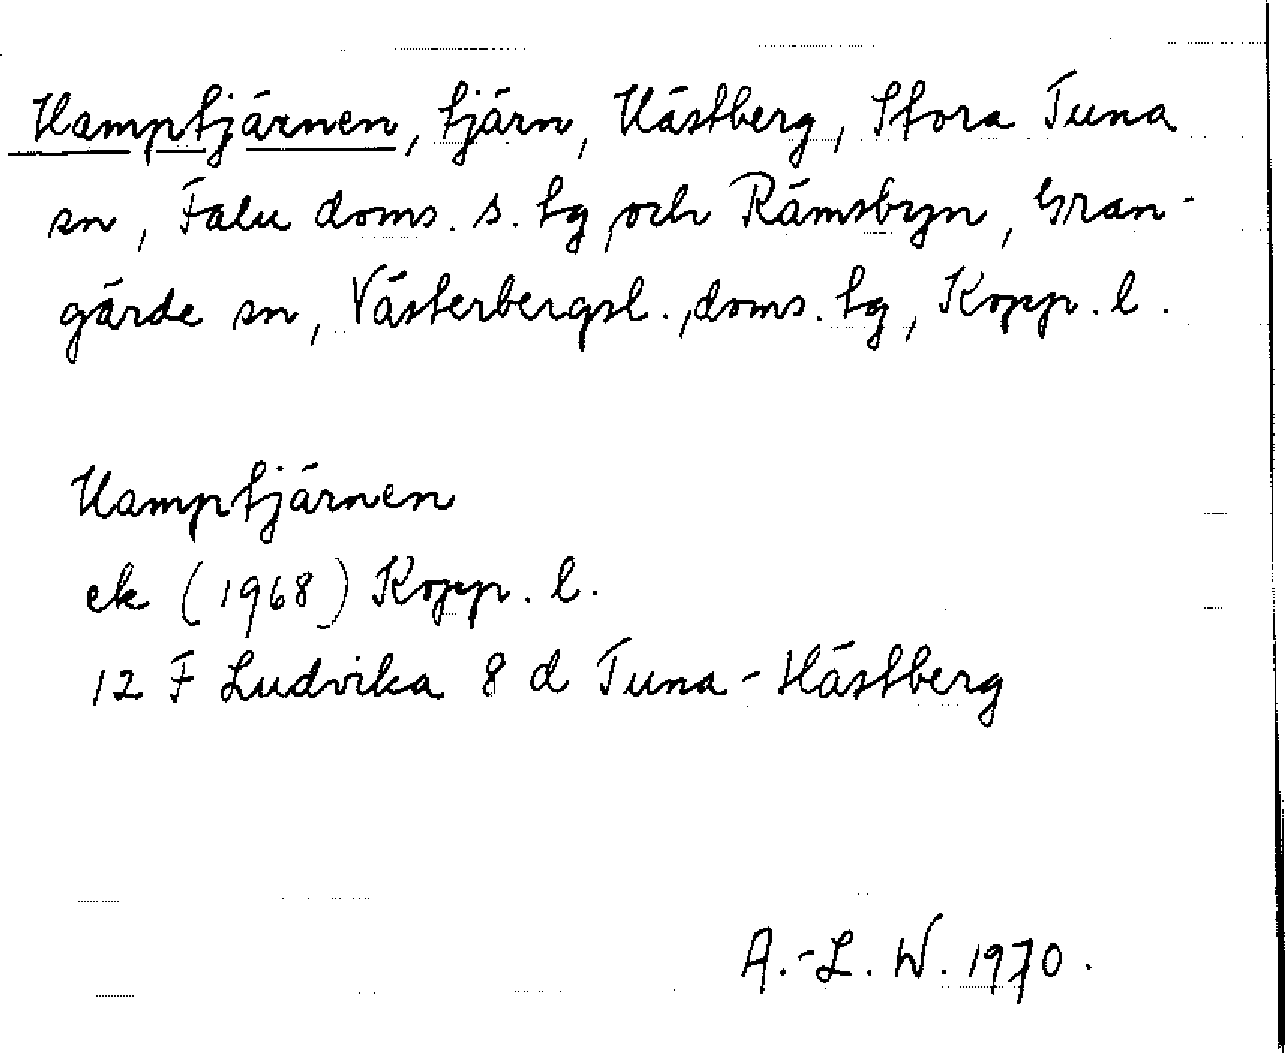 Hamptjärnen, tjärn, Hästberg, Stora Tuna
sn, Falu doms. s. tg och Rämsbyn, Gran-
gärde sn, Västerbergsl. doms. tg, Kopp. l.
Hamptjärnen
ek (1968) Kopp. l.
12 F Ludvika 8 d Tuna-Hästberg
A.-L. W. 1970.